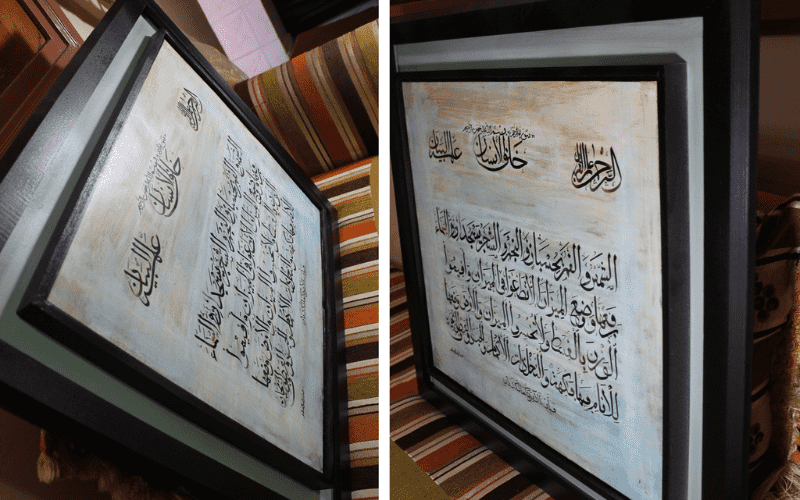 الرحمن علم القرآن
خلق الإنسان
علمه البيان
الشمس والقمر بحسبان والنجم والشجر يسجدان والسماء
رفعها ووضع الميزان ألا تطغوا في الميزان وأقيموا
الوزن بالقسط ولا تخسروا الميزان والأرض وضعها
للأنام فيها فاكهة والنخل ذات الأكمام والحب ذو العصف والريحان
فبأي آلاء ربكما تكذبان